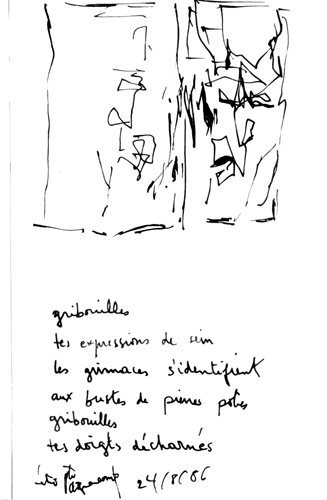 gribouilles
tes expressions de sein
les grimaces s'identifient
aux bustes de pierres
gribouilles
tes doigts décharnés
24/8/06